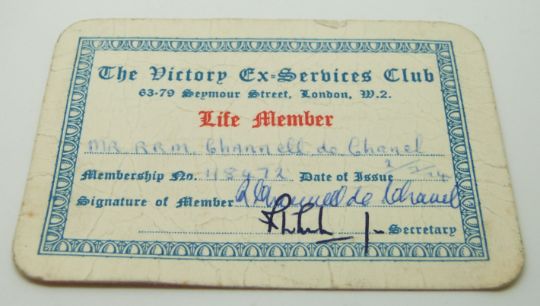 The Victory Ex-Services Club
63-79 Seymour Street, London, W.2.
Life Member
MR R.R.M. Channell de Chanel
Membership No. 118472 Date of Issue
Signature of Member Channell de Chanel
Secretary